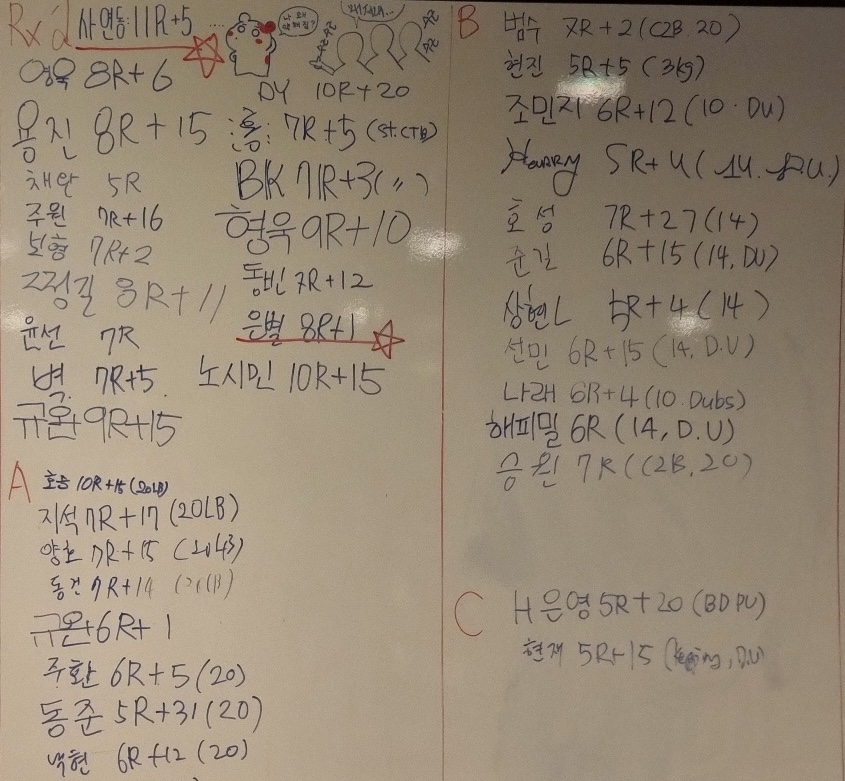 Rx'd 사연동: 11R+5 ...
나 왜 약해짐?
영욱 8R+6
DY 10R+20
용진 8R+15
홍: 7R+5 (St. CTB)
채완 5R
BK 7R+3 (〃)
주원 7R+16
형욱 9R+10
보형 7R+2
동빈 7R+12
정길 8R+11
은별 8R+1
윤선 7R
별 7R+5
노시민 10R+15
규완 9R+15
A
호승 10R+15 (20LB)
지석 7R+17 (20LB)
양호 7R+15 (20LB)
동건 7R+14 (20LB)
규완 6R+1
주환 6R+5 (20)
동준 5R+31 (20)
6R+12 (20)
B 범수 7R+2 (C2B, 20)
현진 5R+5 (3kg)
조민지 6R+12 (10. DU)
HARRY 5R+4 (14. D.U.)
호성 7R+27 (14)
준길 6R+15 (14, DU)
상현L 5R+4 (14)
선민 6R+15 (14, D.U)
나래 6R+4 (10. Dubs)
해피밀 6R (14, D.U)
승원 7R (C2B, 20)
C H은영 5R+20 (BD PU)
현재 5R+15 (, D.U)